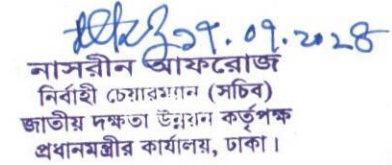 ২৭.০৭.২০২৪
নাসরীন আফরোজ
নির্বাহী চেয়ারম্যান (সচিব)
জাতীয় দক্ষতা উন্নয়ন কর্তৃপক্ষ
প্রধানমন্ত্রীর কার্যালয়, ঢাকা।